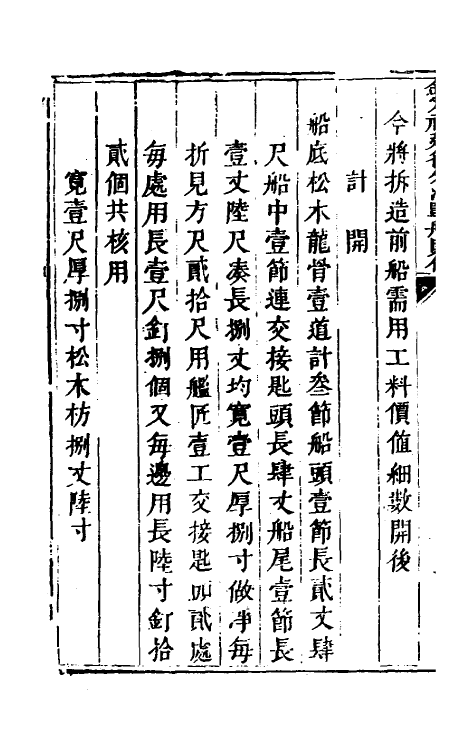 今將拆造前船需用工料價值細數開後
計開
船底松木龍骨壹道計叁節船頭壹節長貳丈肆
尺船中壹節連交接匙頭長肆丈船尾壹節長
壹丈陸尺湊長捌丈均寬壹尺厚捌寸做淨每
折見方尺貳拾尺用艦匠壹工交接匙面貳處
每處用長壹尺釘捌個又每邊用長陸寸釘拾
貳個共核用
寬壹尺厚捌寸松木枋捌丈陸寸